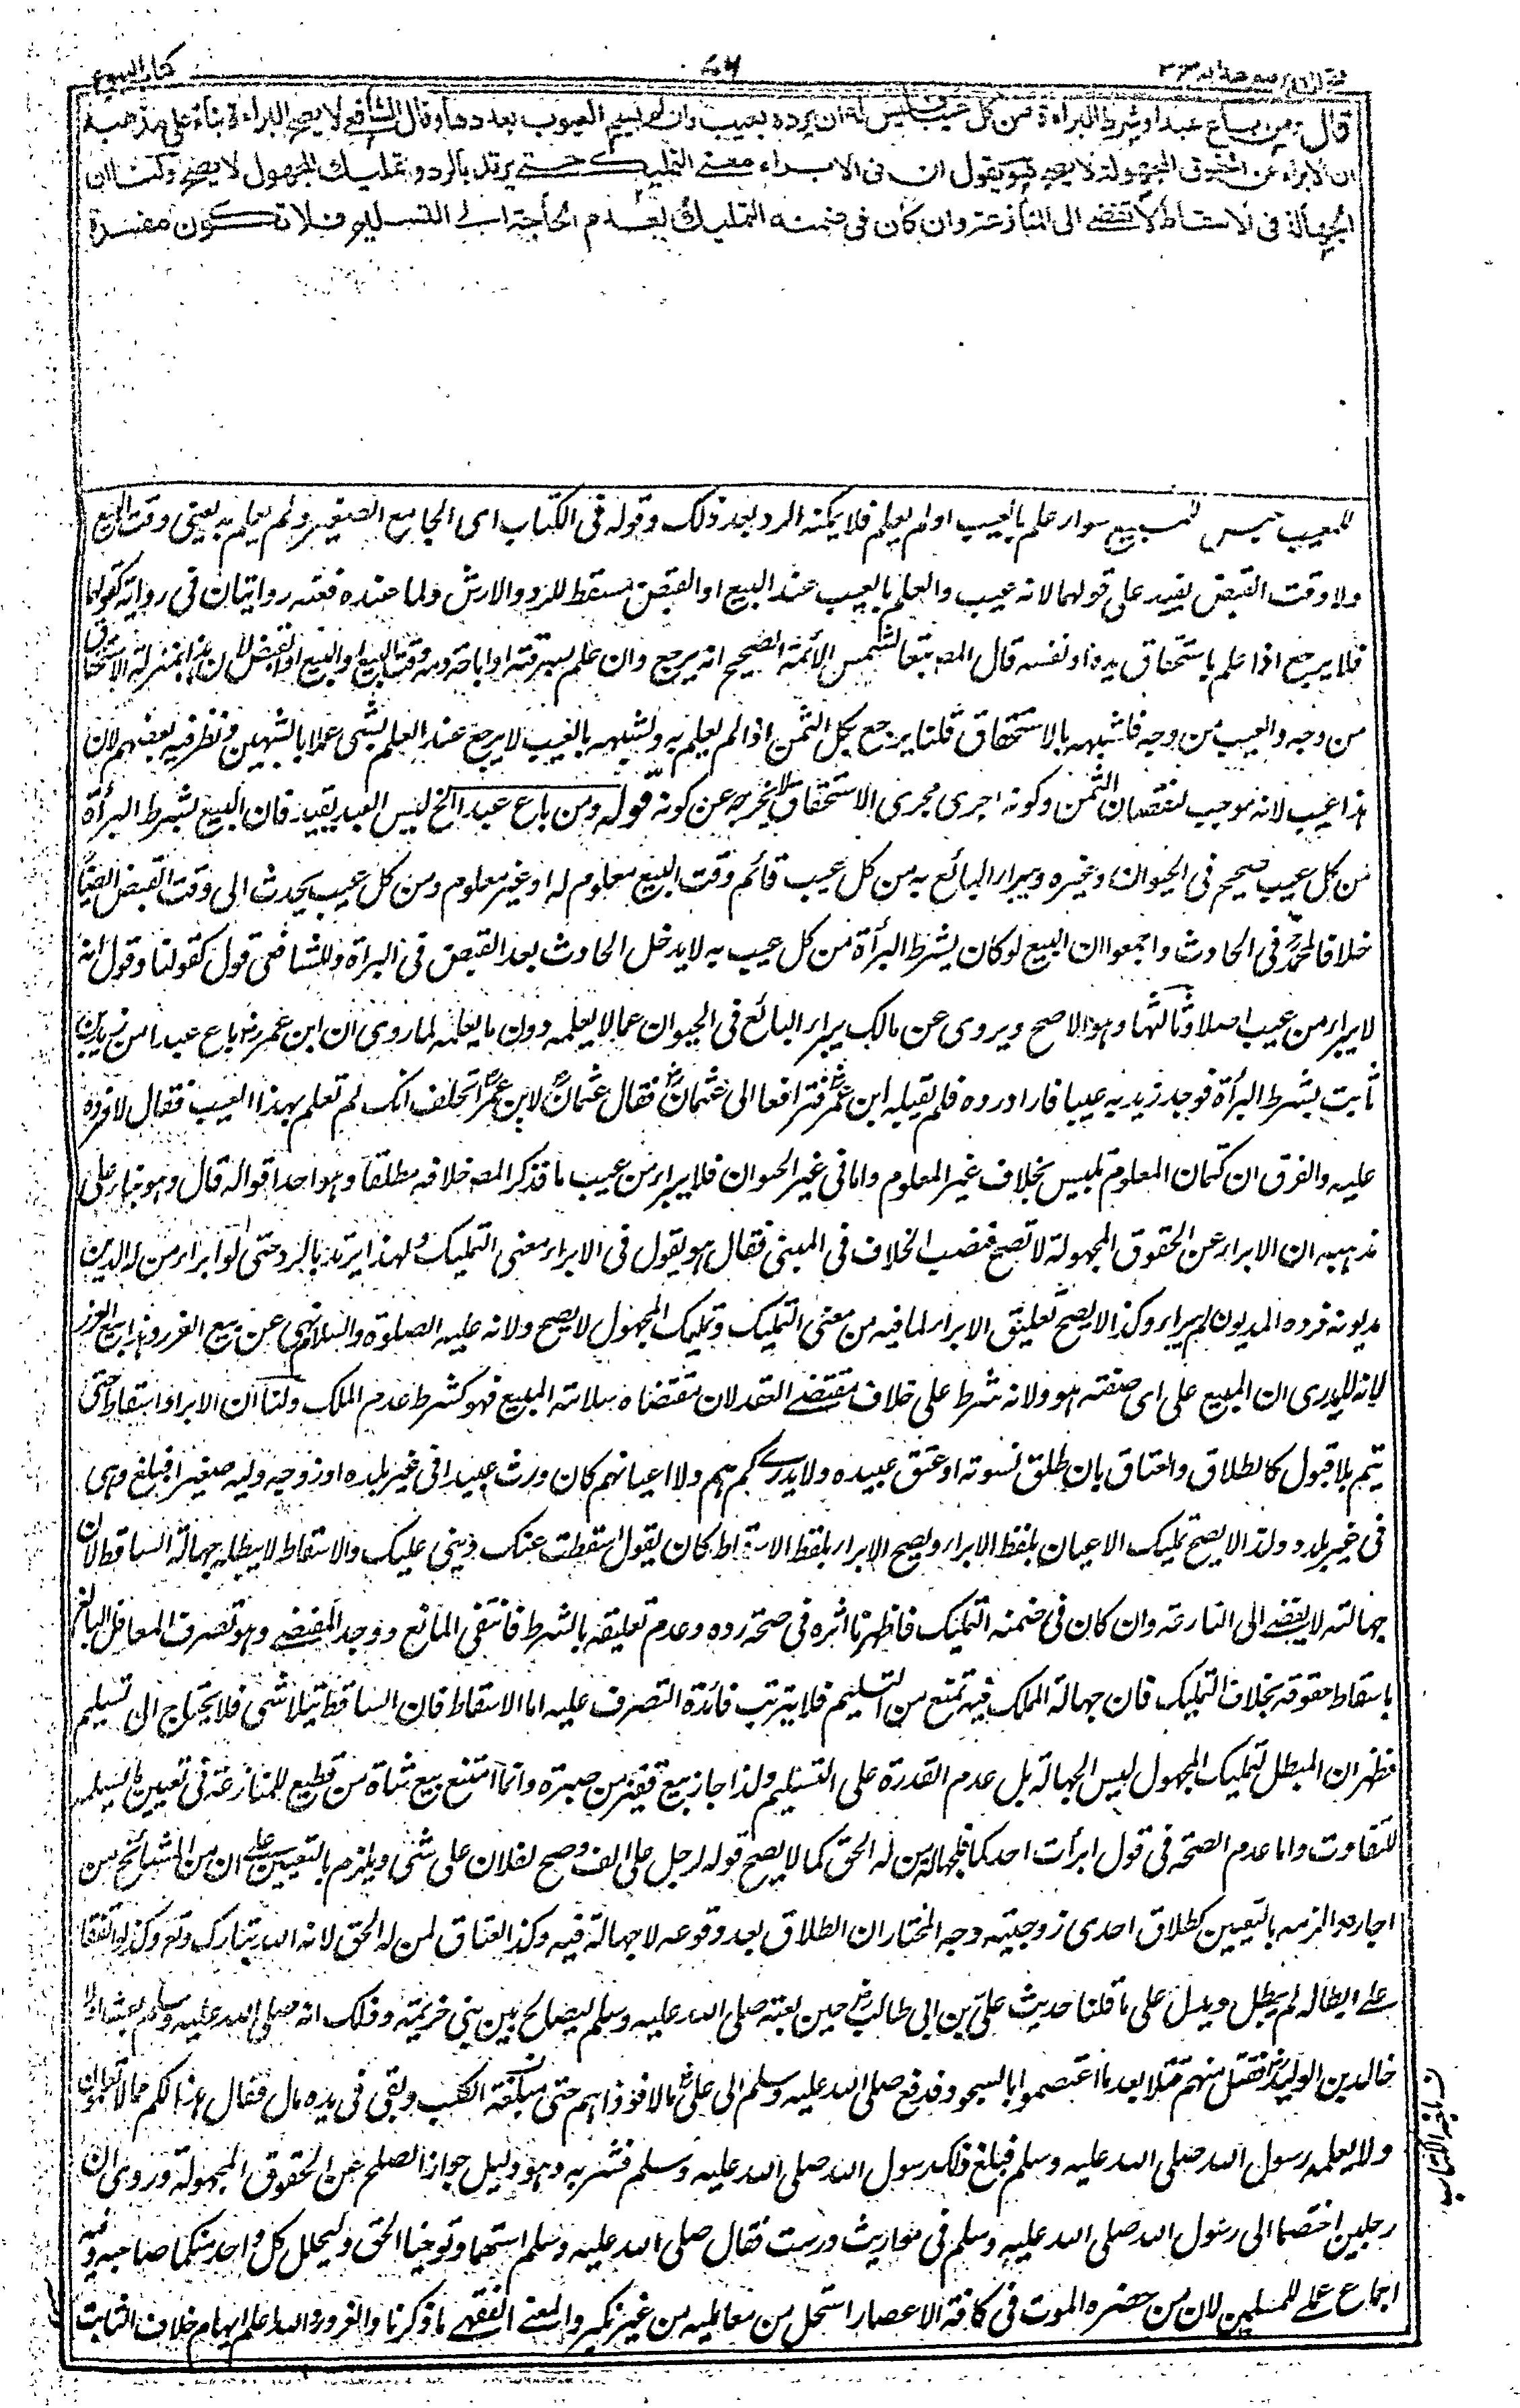 كتاب البيوع
٨٦
قال ومن باع عبدا وشرط البراءة من كل عيب فليس له ان يرده بعيب وان لم يسم العيوب بعددها وقال الشافعي لا يصح البراءة بناء على مذهبه
ان الابراء عن الحقوق المجهولة لا يصح هو يقول ان في الابراء معنى التمليك حتى يرتد بالرد وتمليك المجهول لا يصح ولنا ان
الجهالة في الاسقاط لا تفضي الى المنازعة وان كان في ضمنه التمليك لعدم الحاجة الى التسليم فلا تكون مفسدة
للمعيب حبس المبيع سواء علم بالعيب او لم يعلم فلا يمكنه الرد بعد ذلك وقوله في الكتاب اى الجامع الصغير ولم يعلم به يعنى وقت البيع
ولا وقت القبض يفيد على قولهما لانه عيب والعلم بالعيب عند البيع او القبض مسقط للرد والارش واما عنده فعنه روايتان في رواية كقولهما
فلا يرجع اذا علم باستحقاق يده او نفسه قال المصـ تبعا لشمس الائمة الصحيح انه يرجع وان علم بسرقته او اباحة دمه وقت البيع او القبض لان هذا بمنزلة الاستحقاق
من وجه والعيب من وجه فلشبهه بالاستحقاق قلنا يرجع بكل الثمن اذا لم يعلم به ولشبهه بالعيب لا يرجع عند العلم بشى عملا بالشبهين ونظر فيه بعضهم لان
هذا عيب لانه موجب لنقصان الثمن وكونه اجرى مجرى الاستحقاق لا يخرجه عن كونه قوله ومن باع عبدا الخ ليس العبد بقيد فان البيع بشرط البرأة
من كل عيب صحيح في الحيوان وغيره ويبرأ البائع به من كل عيب قائم وقت البيع معلوم له او غير معلوم ومن كل عيب يحدث الى وقت القبض ايضا
خلافا لمحمد في الحادث واجمعوا ان البيع لو كان بشرط البرأة من كل عيب به لا يدخل الحادث بعد القبض في البرأة وللشافعى قول كقولنا وقول انه
لا يبرأ من عيب اصلا وثالثها وهو الاصح ويروى عن مالك يبرأ البائع في الحيوان عما لا يعلمه دون ما يعلمه لما روى ان ابن عمر رضـ باع عبدا من زيد بن
ثابت بشرط البرأة فوجد زيد به عيبا فاراد رده فلم يقبله ابن عمر فترافعا الى عثمان فقال عثمان لابن عمر اتحلف انك لم تعلم بهذا العيب فقال لا فرده
عليه والفرق ان كتمان المعلوم تلبيس بخلاف غير المعلوم واما في غير الحيوان فلا يبرأ من عيب ما فذكر المصـ خلافه مطلقا وهو احد اقواله قال وهو بناء على
مذهبه ان الابراء عن الحقوق المجهولة لا تصح فنصب الخلاف في المبنى فقال هو يقول في الابراء معنى التمليك ولهذا يرتد بالرد حتى لو ابرأ من له الدين
مديونه فرده المديون لم يبرأ وكذا لا يصح تعليق الابراء لما فيه من معنى التمليك وتمليك المجهول لا يصح ولانه عليه الصلوة والسلام نهى عن بيع الغرر وهذا بيع الغرر
لانه لا يدرى ان المبيع على اى صفته هو ولانه شرط على خلاف مقتضى العقد لان مقتضاه سلامة المبيع فهو كشرط عدم الملك ولنا ان الابراء اسقاط حتى
يتم بلا قبول كالطلاق والعتاق بان طلق نسوته او عتق عبيده ولا يدرى كم هم ولا اعيانهم كان ورث عبيدا في غير بلده او زوجه وليه صغيرا فبلغ وهى
في غير بلده ولذا لا يصح تمليك الاعيان بلفظ الابراء ويصح الابراء بلفظ الاسقاط كان يقول اسقطت عنك دينى عليك والاسقاط لا يبطله جهالة الساقط لان
جهالته لا يفضى الى المنازعة وان كان في ضمنه التمليك فاظهرنا اثره في صحة رده وعدم تعليقه بالشرط فانتفى المانع ووجد المقتضى وهو تصرف العاقل البالغ
باسقاط حقوقه بخلاف التمليك فان جهالة المملك فيه تمنع من التسليم فلا يترتب فائدة التصرف عليه اما الاسقاط فان الساقط يتلاشى فلا يحتاج الى تسليم
فظهر ان المبطل لتمليك المجهول ليس الجهالة بل عدم القدرة على التسليم ولذا جاز بيع قفيز من صبرة وانما امتنع بيع شاة من قطيع للمنازعة في تعيين ما يسلمه
للتفاوت واما عدم الصحة في قول ابرأت احدكما فلجهالة من له الحق كما لا يصح قوله لرجل على الف وصح لفلان على شى ويلزم بالتعيين على ان من المشائخ من
اجازه والزمه بالتعيين كطلاق احدى زوجتيه وجه المختار ان الطلاق بعد وقوعه لا جهالة فيه وكذا العتاق لمن له الحق لانه الله تبارك وتعـ وكذا لو اتفقا
على ابطاله لم يبطل ويدل على ما قلنا حديث على بن ابى طالب حين بعثه صلى الله عليه وسلم ليصالح بين بنى خزيمة وذلك انه صلى الله عليه وسلم بعث اولا
خالد بن الوليد فقتل منهم قتلا بعد ما اعتصموا بالسجود فدفع صلى الله عليه وسلم الى على مالا فوداهم حتى مبلغة الكلب وبقى في يده مال فقال هذا لكم مما لا تعلمون
ولا يعلمه رسول الله صلى الله عليه وسلم فبلغ ذلك رسول الله صلى الله عليه وسلم فسر به وهو دليل جواز الصلح عن الحقوق المجهولة وروى ان
رجلين اختصما الى رسول الله صلى الله عليه وسلم في مواريث درست فقال صلى الله عليه وسلم استهما وتوخيا الحق وليحلل كل واحد منكما صاحبه وفيه
اجماع عملى للمسلمين لان من حضره الموت في كافة الاعصار استحل من معامليه من غير نكير والمعنى الفقهى ما ذكرنا والغرور والله اعلم ايهام خلاف الثابت